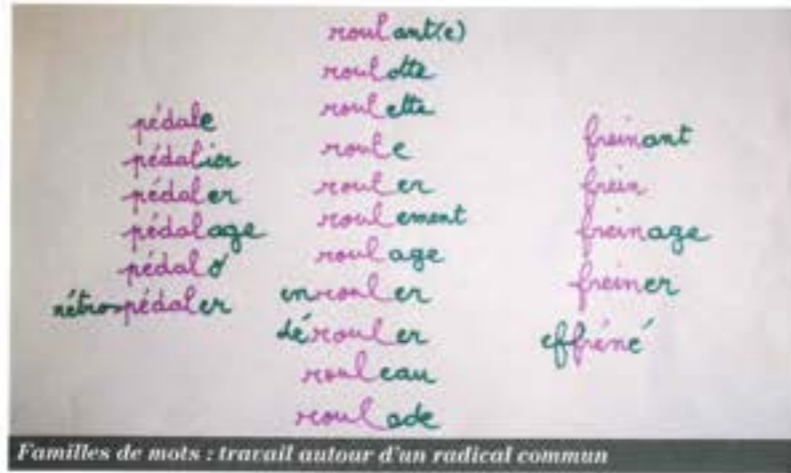 pédale
pédalier
pédaler
pédalage
pédalo
rétropédaler
roulant(e)
roulotte
roulette
roule
rouler
roulement
roulage
enrouler
dérouler
rouleau
roulade
freinant
frein
freinage
freiner
effréné
Familles de mots : travail autour d'un radical commun